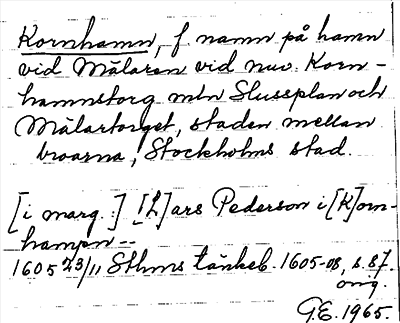 Kornhamn, f. namn på hamn
vid Mälaren vid nuv. Korn-
hamnstorg mln Slussplan och
Mälartorget, staden mellan
broarna, Stockholms stad.
[i marg.:] [L]ars Pederson i [K]orn-
hampn--
1605 23/11 Sthms tänkeb. 1605-08, s. 87.
orig.
G.E. 1965.